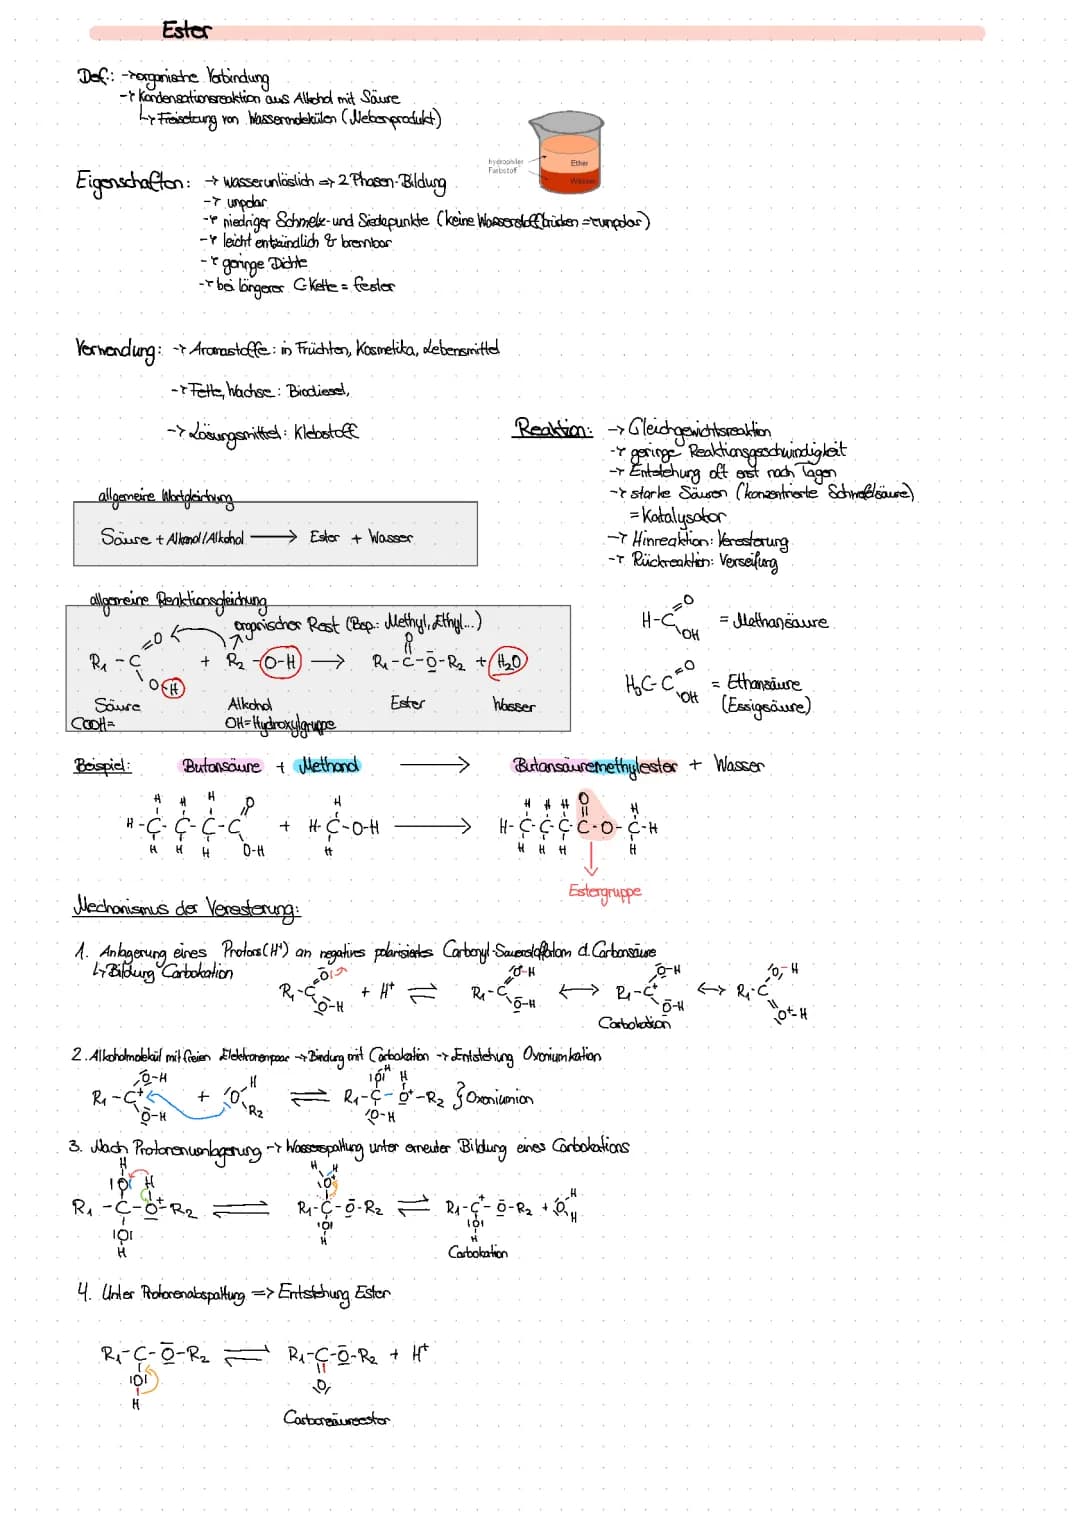 Ester
Def.: → organische Verbindung
→ Kondensationsreaktion aus Alkohol mit Säure
↳ Freisetzung von Wassermolekülen (Nebenprodukt)
hydrophiler
Farbstoff
Ether
Wasser
Eigenschaften: → wasserunlöslich ⇒ 2 Phasen-Bildung
→ unpolar
→ niedriger Schmelz- und Siedepunkte (keine Wasserstoffbrücken = unpolar)
→ leicht entzündlich & brennbar
→ geringe Dichte
→ bei längerer C-Kette = fester
Verwendung: → Aromastoffe: in Früchten, Kosmetika, Lebensmittel
→ Fette, Wachse: Biodiesel,
→ Lösungsmittel: Klebstoff
Reaktion: → Gleichgewichtsreaktion
→ geringe Reaktionsgeschwindigkeit
→ Entstehung oft erst nach Tagen
→ starke Säuren (konzentrierte Schwefelsäure)
= Katalysator
→ Hinreaktion: Veresterung
→ Rückreaktion: Verseifung
allgemeine Wortgleichung
Säure + Alkanol/Alkohol → Ester + Wasser
allgemeine Reaktionsgleichung
organischer Rest (Bsp.: Methyl, Ethyl...)
R₁-C=O O-H + R₂-O-H → R₁-C-O-R₂ + H₂O
Säure Alkohol Ester Wasser
COOH= OH=Hydroxylgruppe
H-C=O OH = Methansäure
H₃C-C=O OH = Ethansäure
(Essigsäure)
Beispiel: Butansäure + Methanol → Butansäuremethylester + Wasser
H H H O H H H H O H
H-C-C-C-C + H-C-O-H → H-C-C-C-C-O-C-H
H H H O-H H H H H H
Estergruppe
Mechanismus der Veresterung:
1. Anlagerung eines Protons (H⁺) an negatives polarisiertes Carbonyl-Sauerstoffatom d. Carbonsäure
↳ Bildung Carbokation
R₁-C O O-H + H⁺ ⇌ R₁-C O-H O-H ↔ R₁-C⁺ O-H O-H ↔ R₁-C O-H O⁺-H
Carbokation
2. Alkoholmolekül mit freien Elektronenpaar → Bindung mit Carbokation → Entstehung Oxoniumkation
R₁-C⁺ O-H O-H + O H R₂ ⇌ R₁-C-O⁺-R₂ } Oxoniumion
3. Nach Protonenumlagerung → Wasserspaltung unter erneuter Bildung eines Carbokations
R₁-C-O⁺-R₂ ⇌ R₁-C-O-R₂ ⇌ R₁-C⁺-O-R₂ + O H H
Carbokation
4. Unter Protonenabspaltung => Entstehung Ester
R₁-C-O-R₂ ⇌ R₁-C-O-R₂ + H⁺
Carbonsäureester